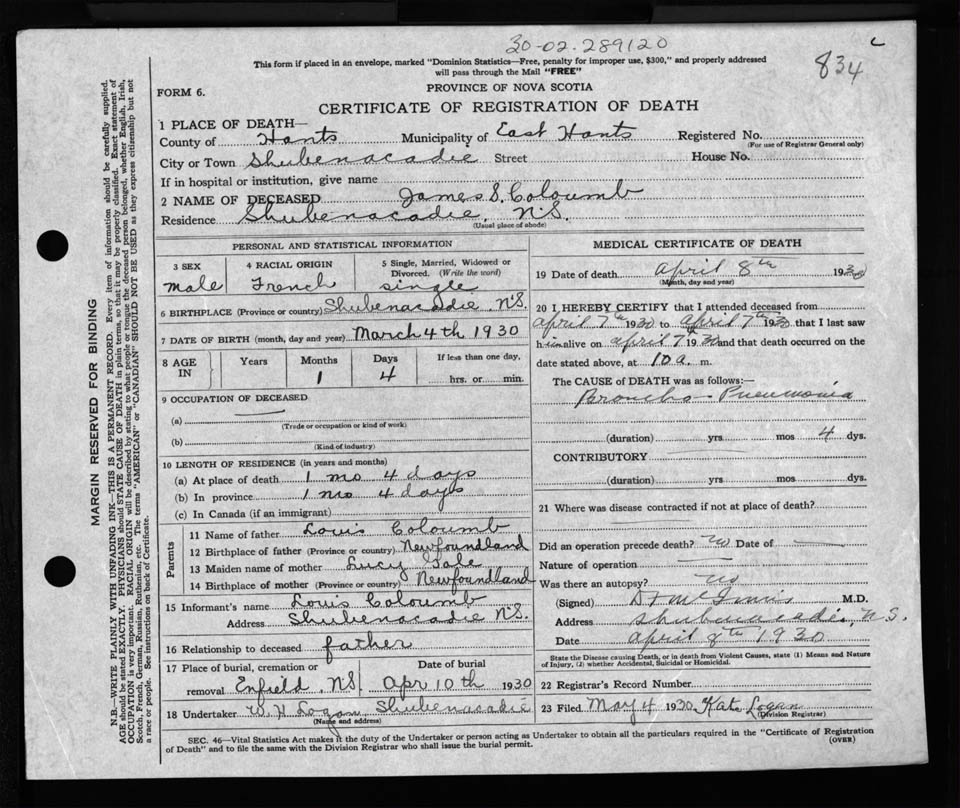 30-02-289120
834
This form if placed in an envelope, marked "Dominion Statistics—Free, penalty for improper use, $300," and properly addressed
will pass through the Mail "FREE"
FORM 6.
PROVINCE OF NOVA SCOTIA
CERTIFICATE OF REGISTRATION OF DEATH
1 PLACE OF DEATH—
County of Hants Municipality of East Hants Registered No.
(For use of Registrar General only)
City or Town Shubenacadie Street House No.
If in hospital or institution, give name
2 NAME OF DECEASED James S. Coloumb
Residence Shubenacadie, N.S.
(Usual place of abode)
PERSONAL AND STATISTICAL INFORMATION
3 SEX
male
4 RACIAL ORIGIN
French
5 Single, Married, Widowed or
Divorced. (Write the word)
single
6 BIRTHPLACE (Province or country) Shubenacadie N.S.
7 DATE OF BIRTH (month, day and year) March 4th 1930
8 AGE
IN
Years
Months
1
Days
4
If less than one day,
hrs. or min.
9 OCCUPATION OF DECEASED
(a)
(Trade or occupation or kind of work)
(b)
(Kind of industry)
10 LENGTH OF RESIDENCE (in years and months)
(a) At place of death 1 mo 4 days
(b) In province 1 mo 4 days
(c) In Canada (if an immigrant)
Parents
11 Name of father Louis Coloumb
12 Birthplace of father (Province or country) Newfoundland
13 Maiden name of mother Lucy Gale
14 Birthplace of mother (Province or country) Newfoundland
15 Informant's name Louis Coloumb
Address Shubenacadie N.S.
16 Relationship to deceased father
17 Place of burial, cremation or
removal Enfield, N.S.
Date of burial
Apr 10th 1930
18 Undertaker W. H Logan Shubenacadie
(Name and address)
MEDICAL CERTIFICATE OF DEATH
19 Date of death April 8th 1930
(Month, day and year)
20 I HEREBY CERTIFY that I attended deceased from
April 7th 1930 to April 7th 1930 that I last saw
h im alive on April 7th 1930 and that death occurred on the
date stated above, at 10 a. m.
The CAUSE OF DEATH was as follows:—
Broncho-Pneumonia
(duration) yrs mos 4 dys.
CONTRIBUTORY
(duration) yrs. mos. dys.
21 Where was disease contracted if not at place of death?
Did an operation precede death? No Date of
Nature of operation
Was there an autopsy? No
(Signed) M.D.
Address Shubenacadie, N.S.
Date April 8th 1930
State the Disease causing Death, or in death from Violent Causes, state (1) Means and Nature
of Injury, (2) whether Accidental, Suicidal or Homicidal.
22 Registrar's Record Number
23 Filed May 4 1930 Kate Logan
(Division Registrar)
SEC. 46—Vital Statistics Act makes it the duty of the Undertaker or person acting as Undertaker to obtain all the particulars required in the "Certificate of Registration
of Death" and to file the same with the Division Registrar who shall issue the burial permit.
(OVER)
MARGIN RESERVED FOR BINDING
N.B.—WRITE PLAINLY WITH UNFADING INK—THIS IS A PERMANENT RECORD. Every item of information should be carefully supplied.
AGE should be stated EXACTLY. PHYSICIANS should STATE CAUSE OF DEATH in plain terms, so that it may be properly classified. Exact statement of
OCCUPATION is very important. RACIAL ORIGIN will be described by stating to what people or tongue the deceased person belonged, whether English, Irish,
Scotch, French, German, Russian, Ruthenian, etc. The terms "AMERICAN" or "CANADIAN" SHOULD NOT BE USED as they express citizenship but not
a race or people. See instructions on back of Certificate.